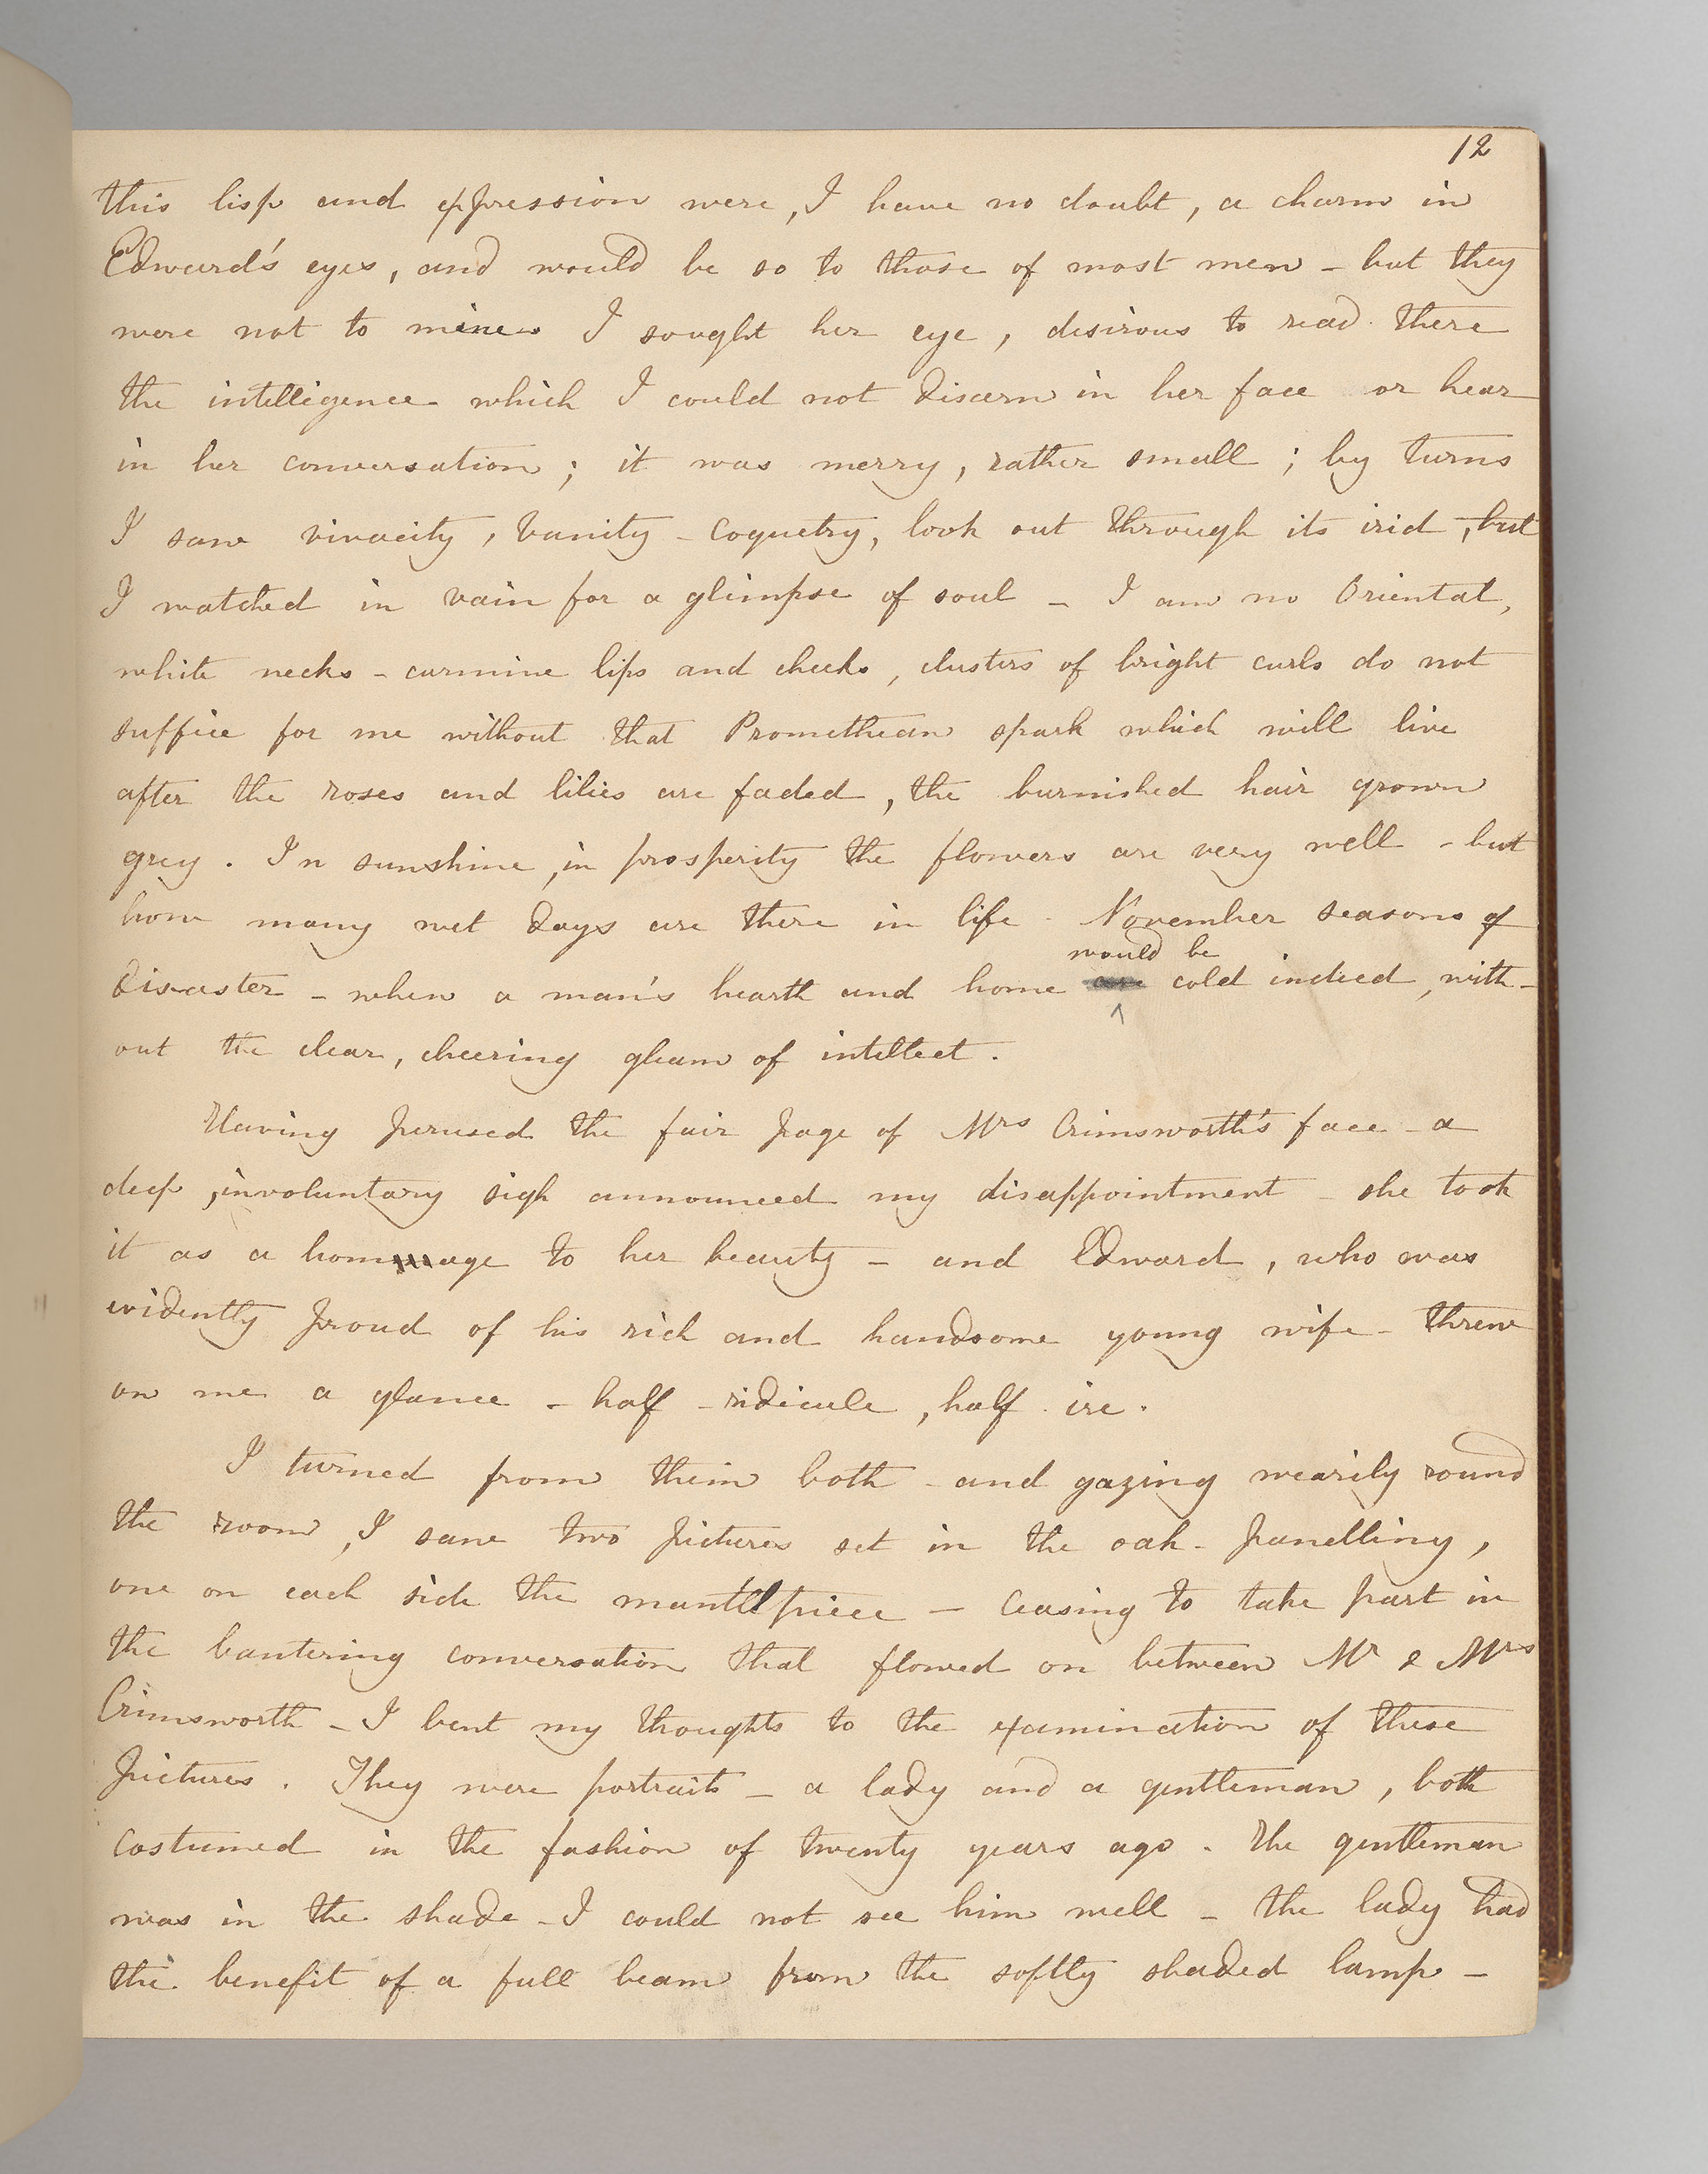 12
this lisp and expression were, I have no doubt, a charm in
Edward's eyes, and would be so to those of most men - but they
were not to mine. I sought her eye, desirous to read there
the intelligence which I could not discern in her face or hear
in her conversation; it was merry, rather small; by turns
I saw vivacity, vanity - coquetry, look out through its irid, but
I watched in vain for a glimpse of soul - I am no Oriental,
white necks - carmine lips and cheeks, clusters of bright curls do not
suffice for me without that Promethean spark which will live
after the roses and lilies are faded, the burnished hair grown
grey. In sunshine, in prosperity the flowers are very well - but
how many wet days are there in life - November seasons of
would be
disaster - when a man's hearth and home are cold indeed, with-
out the clear, cheering gleam of intellect.
Having perused the fair page of Mrs Crimsworth's face - a
deep, involuntary sigh announced my disappointment - she took
it as a homage to her beauty - and Edward, who was
evidently proud of his rich and handsome young wife - threw
on me a glance - half - ridicule, half - ire.
I turned from them both - and gazing wearily round
the room, I saw two pictures set in the oak - panelling,
one on each side the mantlpiece - Ceasing to take part in
the bantering conversation that flowed on between Mr & Mrs
Crimsworth - I bent my thoughts to the examination of these
pictures. They were portraits - a lady and a gentleman, both
costumed in the fashion of twenty years ago. The gentleman
was in the shade - I could not see him well - the lady had
the benefit of a full beam from the softly shaded lamp -